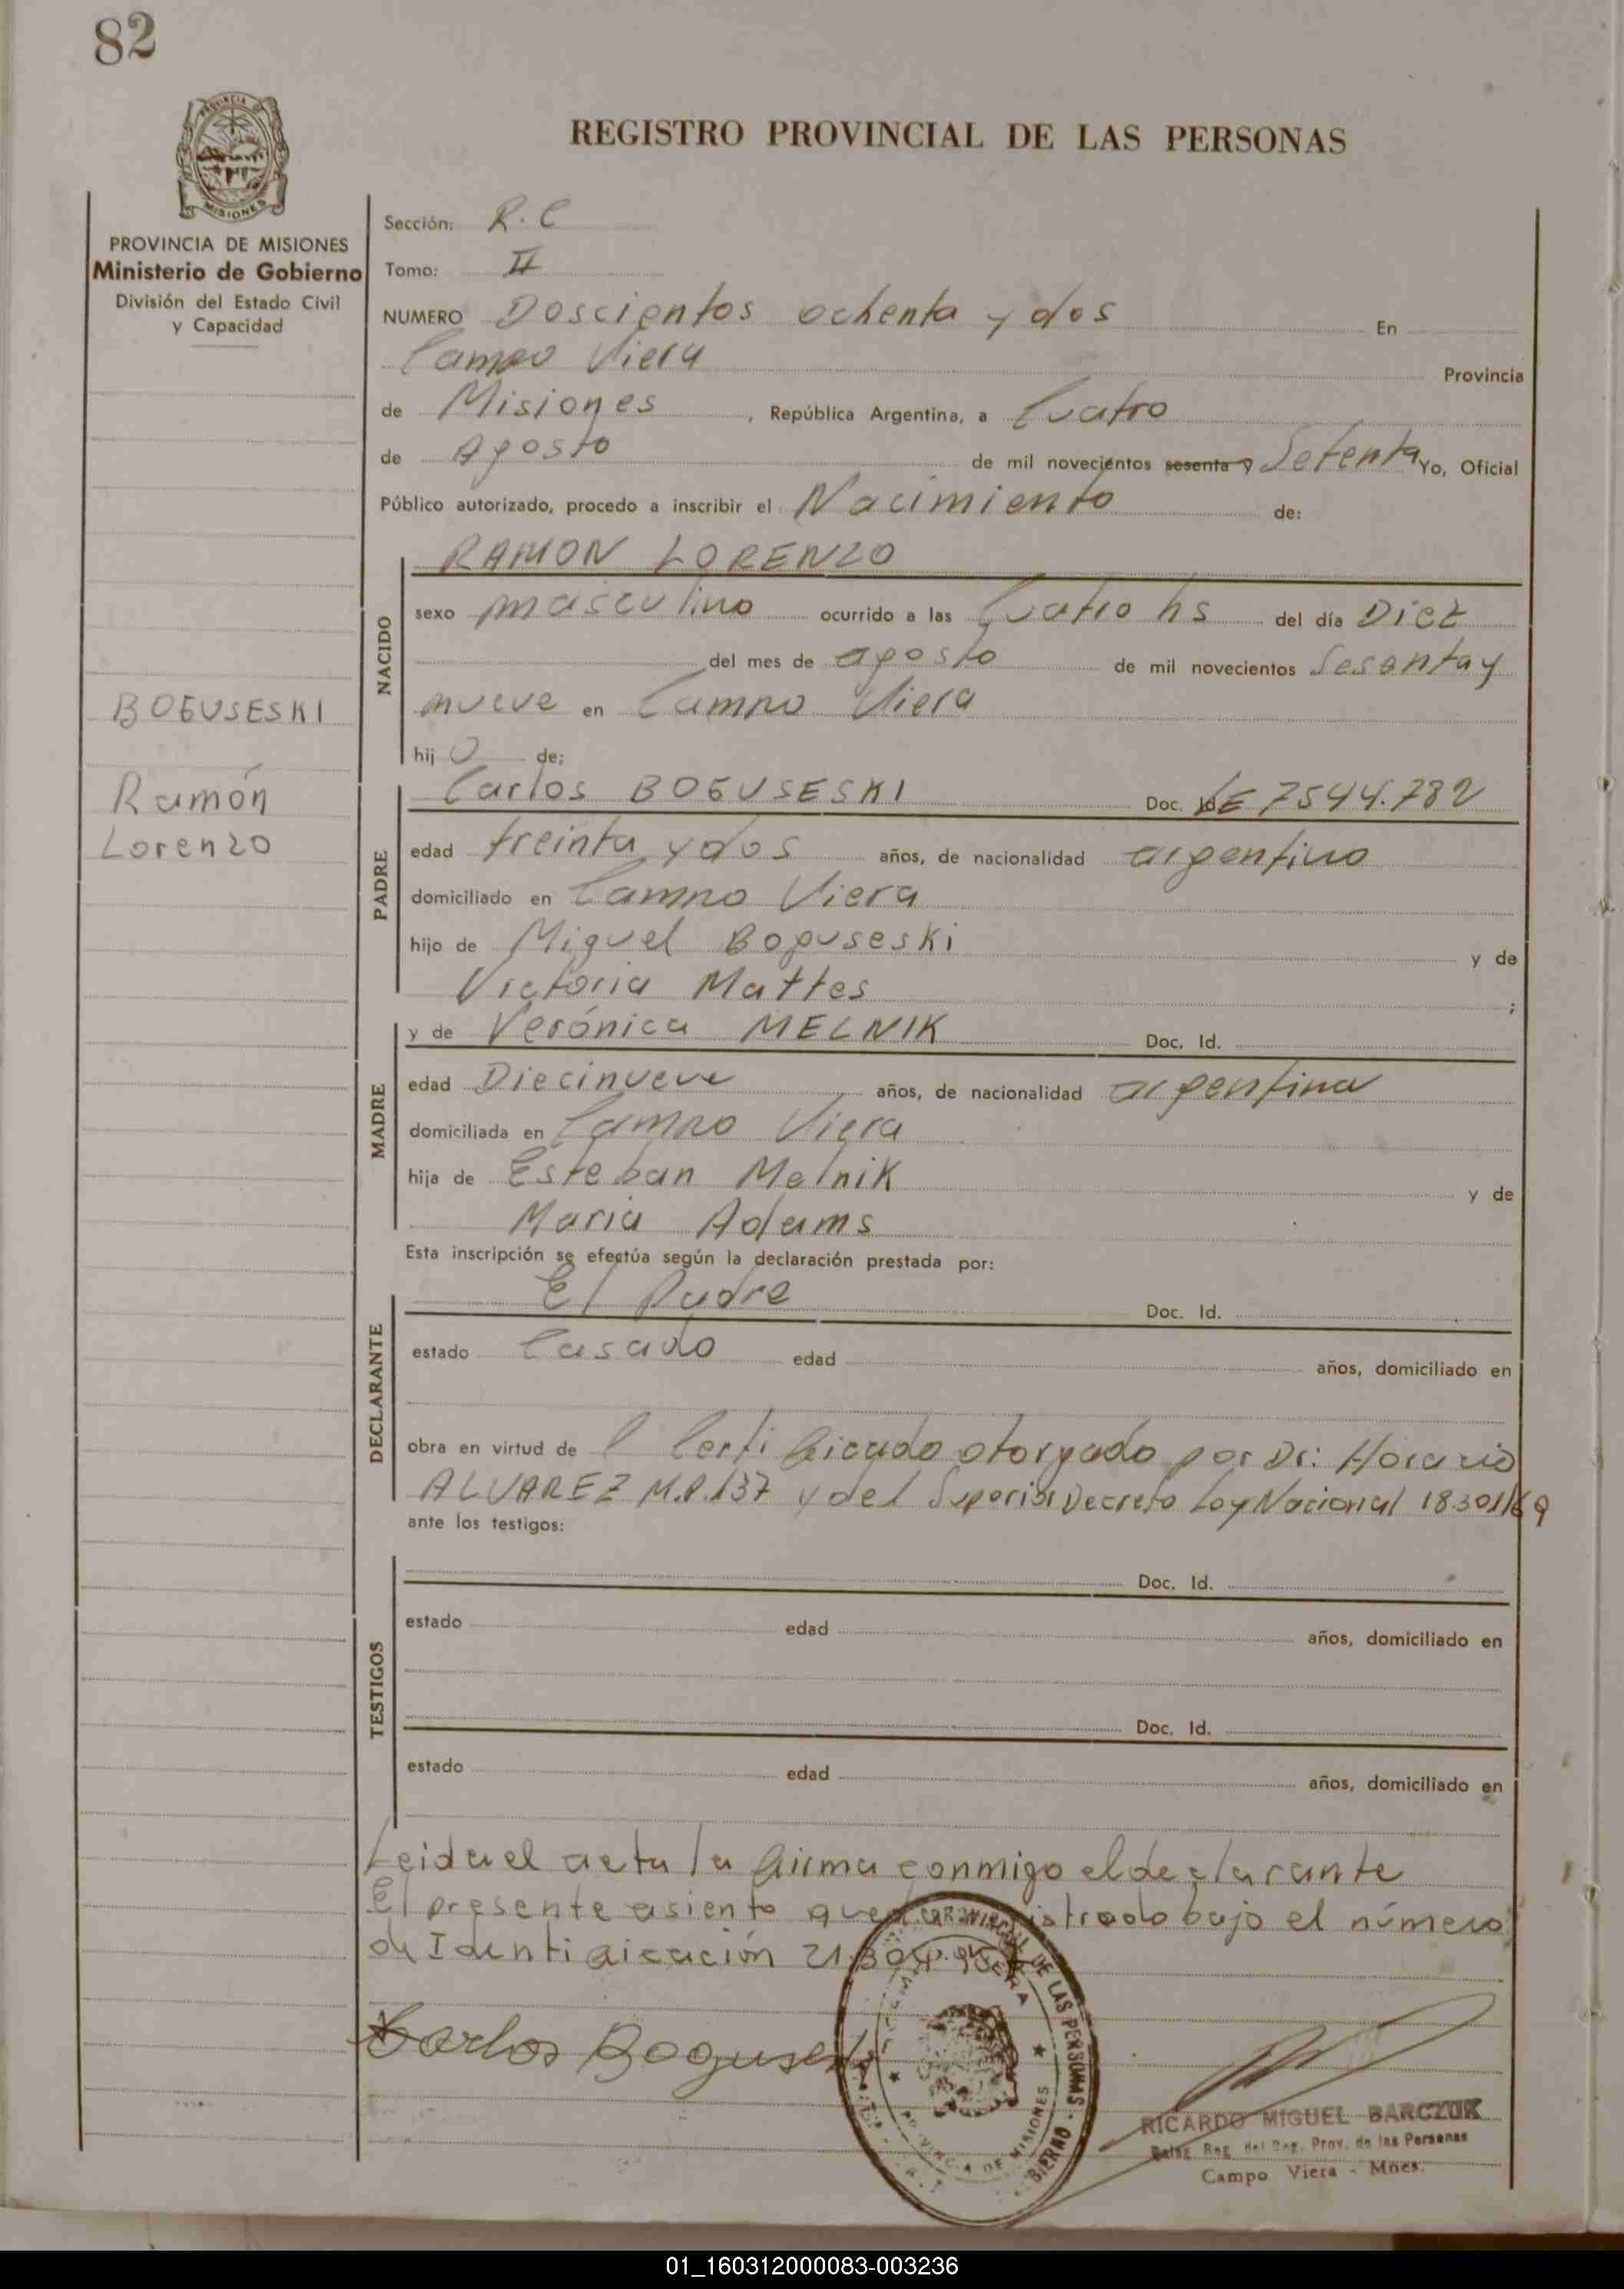 82
PROVINCIA DE
MISIONES
REGISTRO PROVINCIAL DE LAS PERSONAS
PROVINCIA DE MISIONES
Ministerio de Gobierno
División del Estado Civil
y Capacidad
Sección: R.C
Tomo: II
NUMERO Doscientos ochenta y dos En
Campo Viera Provincia
de Misiones , República Argentina, a Cuatro
de Agosto de mil novecientos sesenta y Setenta Yo, Oficial
Público autorizado, procedo a inscribir el Nacimiento de:
NACIDO
RAMON LORENZO
sexo masculino ocurrido a las Cuatro hs del día Diez
del mes de agosto de mil novecientos Sesenta y
nueve en Campo Viera
hijo de:
BOGUSESKI
Ramón
Lorenzo
PADRE
Carlos BOGUSESKI Doc. Id. LE 7544.782
edad treinta y dos años, de nacionalidad argentino
domiciliado en Campo Viera
hijo de Miguel Boguseski y de
Victoria Mattes ;
MADRE
y de Verónica MELNIK Doc. Id.
edad Diecinueve años, de nacionalidad argentina
domiciliada en Campo Viera
hija de Esteban Melnik y de
Maria Adams
Esta inscripción se efectúa según la declaración prestada por:
DECLARANTE
El Padre Doc. Id.
estado Casado edad años, domiciliado en
obra en virtud de l Certificado otorgado por Dr: Horacio
ALVAREZ M.P.137 y del Superior Decreto Ley Nacional 18.301/69
ante los testigos:
TESTIGOS
Doc. Id.
estado edad años, domiciliado en
Doc. Id.
estado edad años, domiciliado en
Leida el acta la firma conmigo el declarante
El presente asiento queda registrado bajo el número
de Identificación 21.304.
Carlos Boguseski
DE LAS PERSONAS
PROVINCIA DE MISIONES
RICARDO MIGUEL BARCZUK
Reg. del Reg. Prov. de las Personas
Campo Viera - Mnes.
01_160312000083-003236